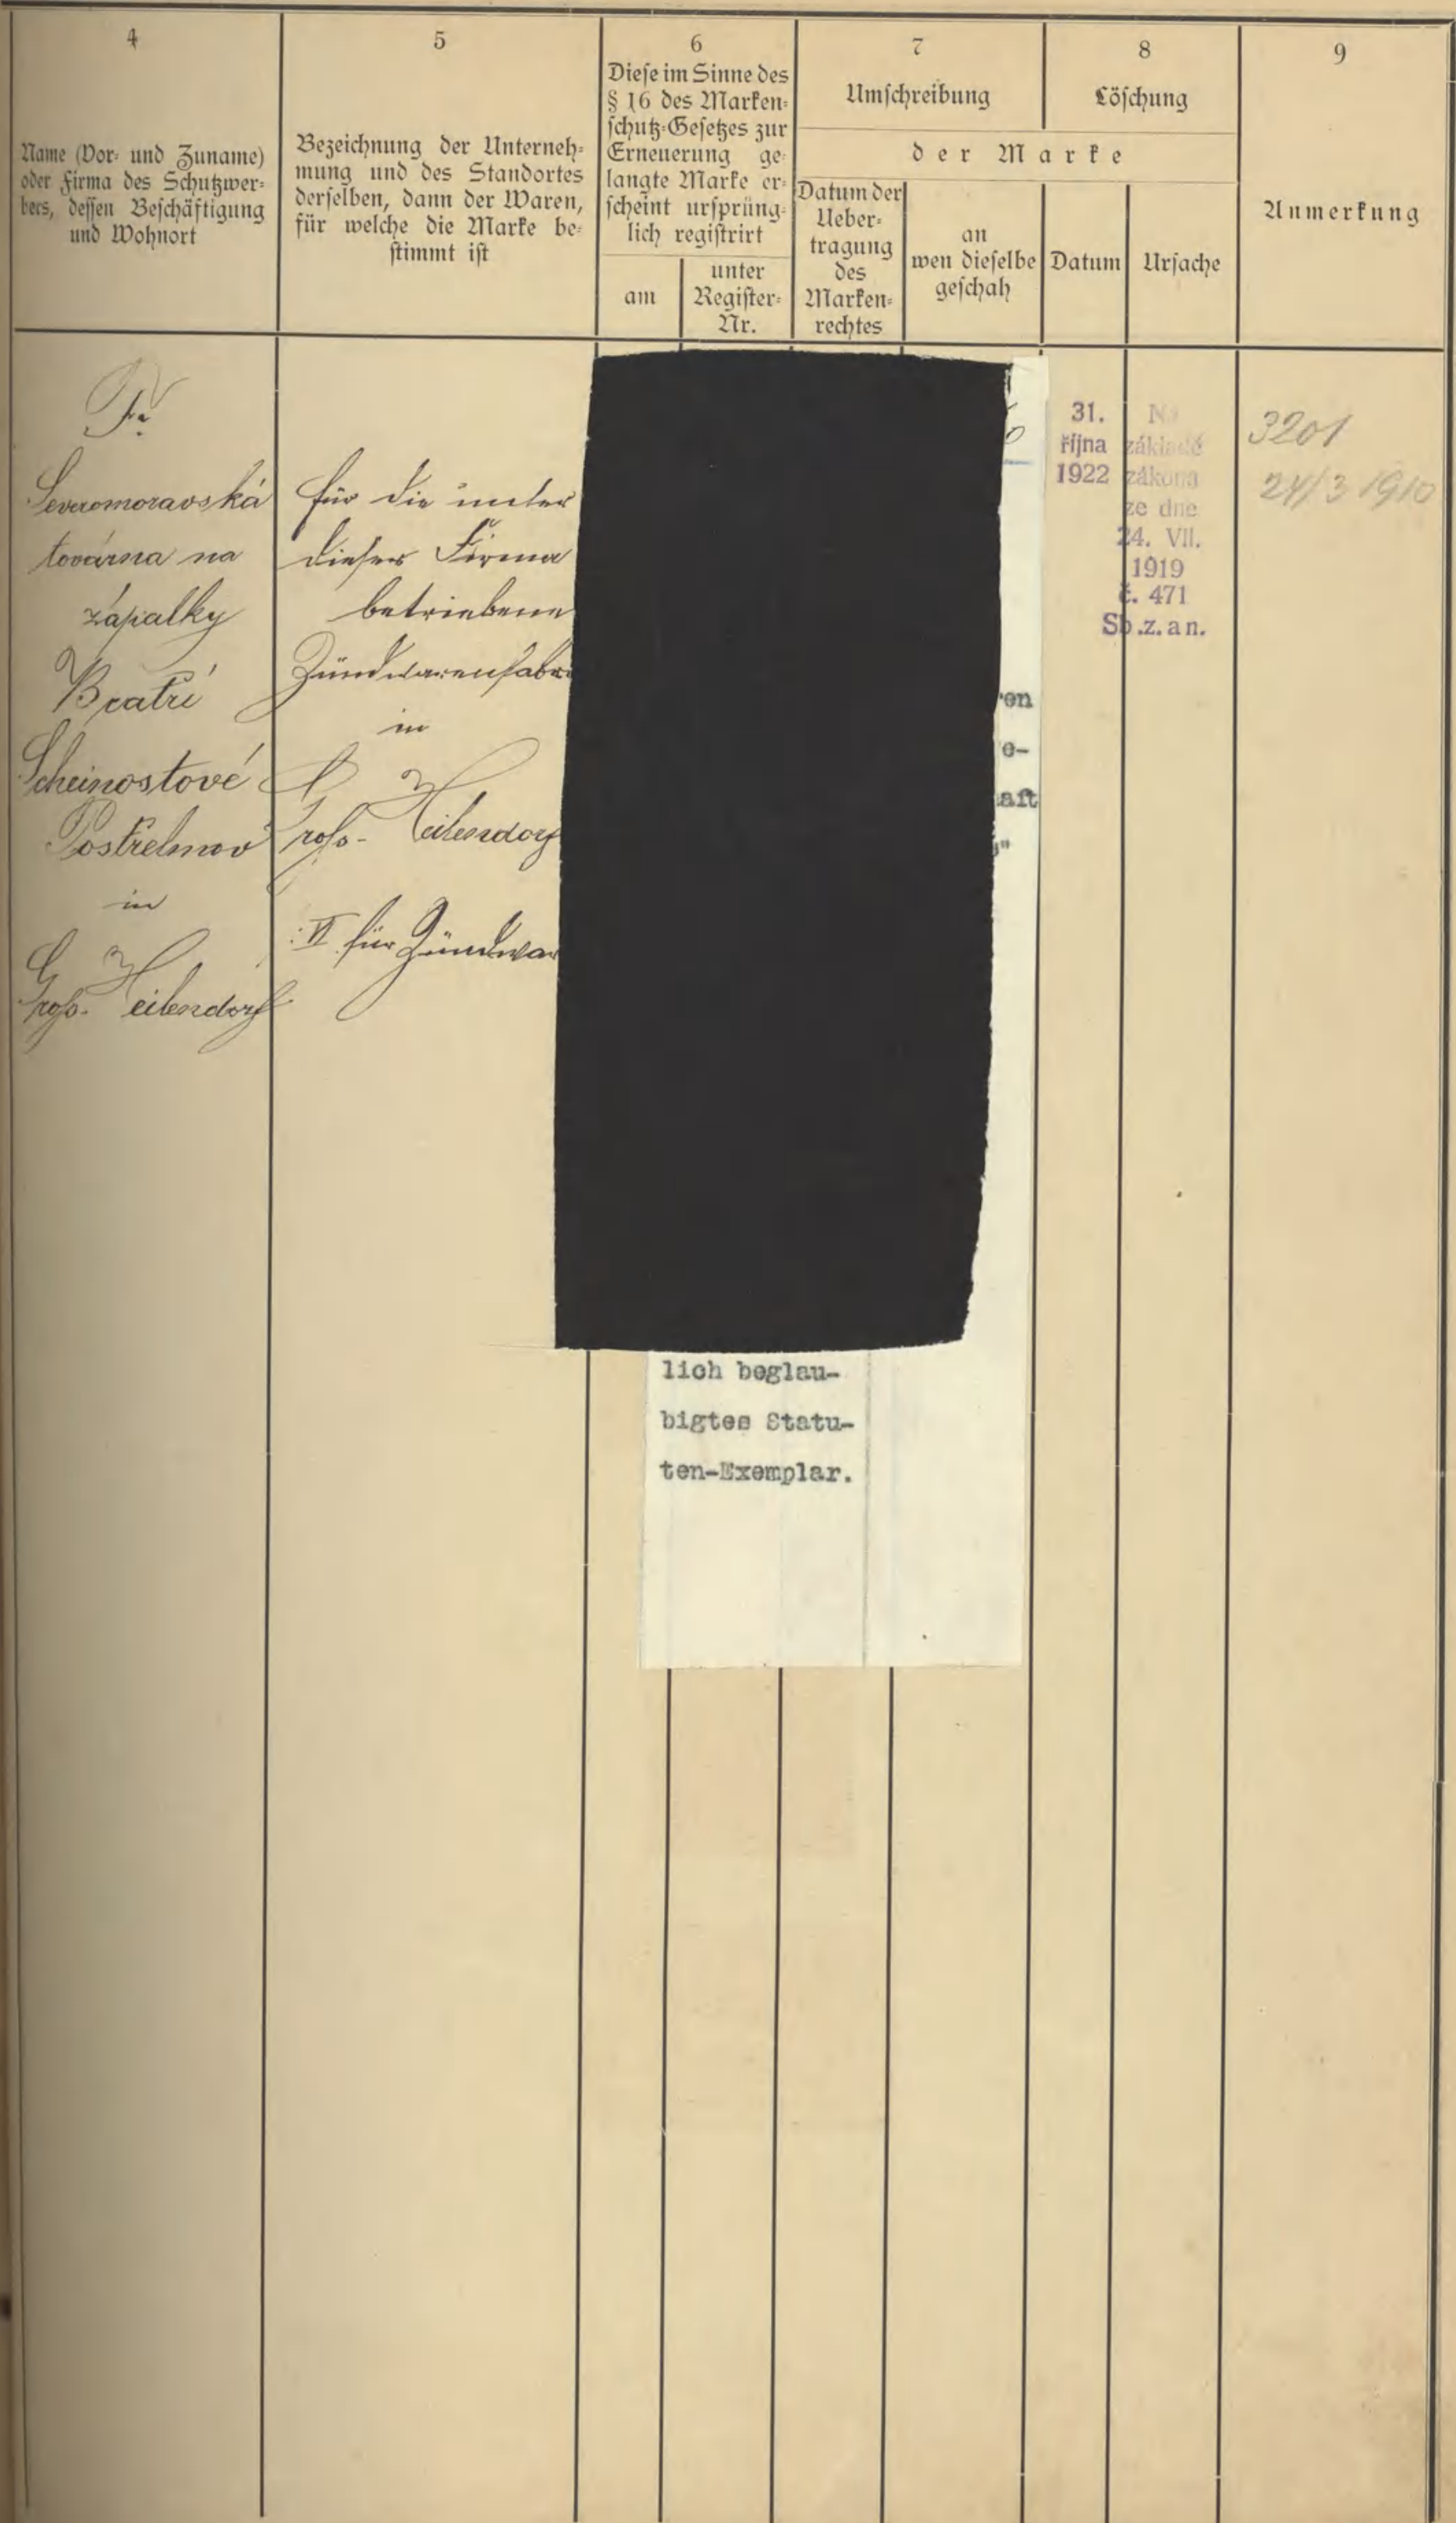 4
Name (Vor- und Zuname)
oder Firma des Schutzwer-
bers, dessen Beschäftigung
und Wohnort
5
Bezeichnung der Unterneh-
mung und des Standortes
derselben, dann der Waren,
für welche die Marke be-
stimmt ist
6
Diese im Sinne des
§ 16 des Marken-
schutz-Gesetzes zur
Erneuerung ge-
langte Marke er-
scheint ursprüng-
lich registrirt
am
unter
Register-
Nr.
7
Umschreibung
8
Löschung
der Marke
Datum der
Ueber-
tragung
des
Marken-
rechtes
an
wen dieselbe
geschah
Datum
Ursache
9
Anmerkung
Fa
Severomoravská
továrna na
zápalky
Bratří
Scheinostové
Postřelmov
in
Gross-Heilendorf
für die unter
dieser Firma
betriebene
Zündwarenfabri
in
Gross-Heilendorf
VI für Zündwar
en
e-
aft
"
lich beglau-
bigtes Statu-
ten-Exemplar.
31.
října
1922
Na
základě
zákona
ze dne
24. VII.
1919
č. 471
Sb.z.an.
3201
24/3 1910